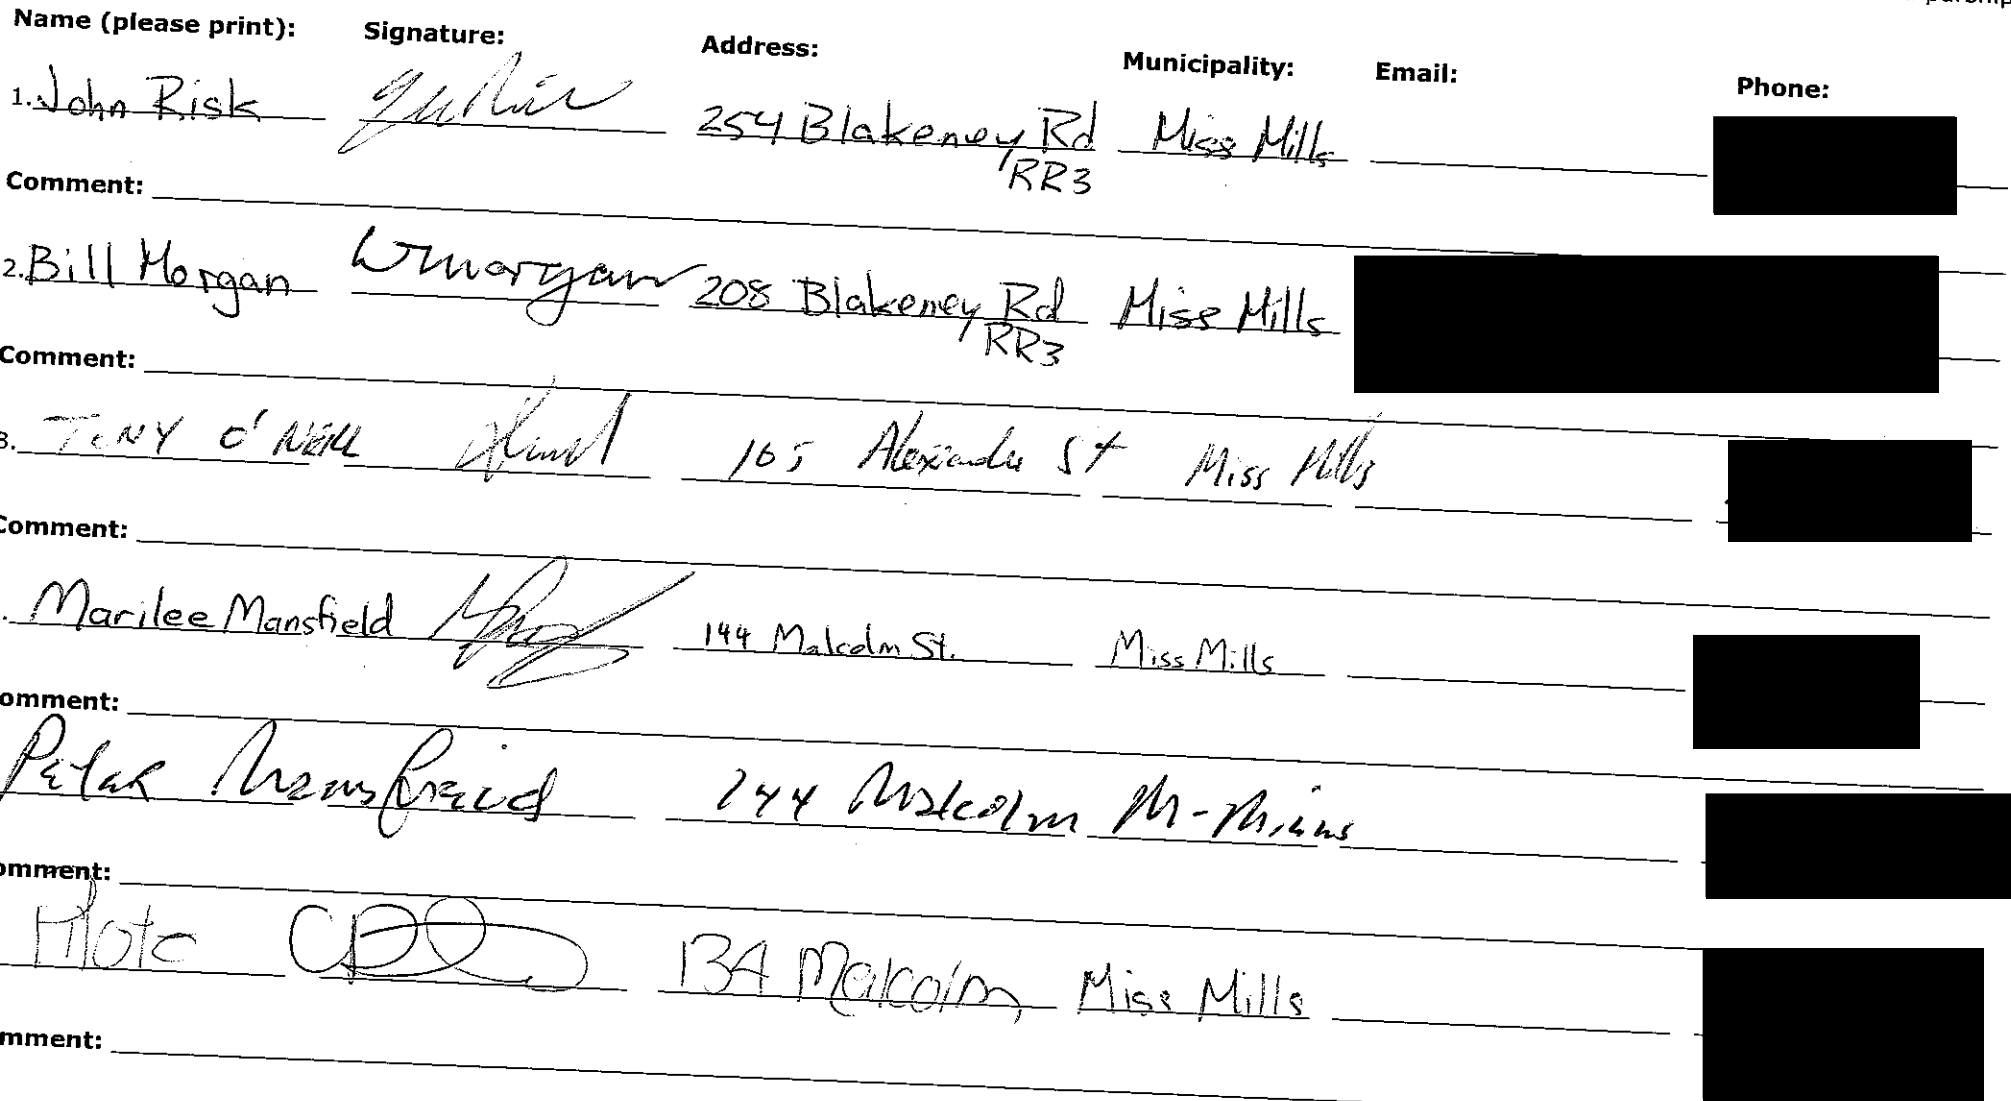 Name (please print): Signature: Address: Municipality: Email: Phone:
1. John Risk 254 Blakeney Rd Miss Mills
RR3
Comment:
2. Bill Morgan WMorgan 208 Blakeney Rd Miss Mills
RR3
Comment:
3. TONY O'NEILL 165 Alexander St Miss Mills
Comment:
Marilee Mansfield 144 Malcolm St. Miss Mills
omment:
Peter Mansfield 144 Malcolm M-Mills
omment:
134 Malcolm, Miss Mills
mment: